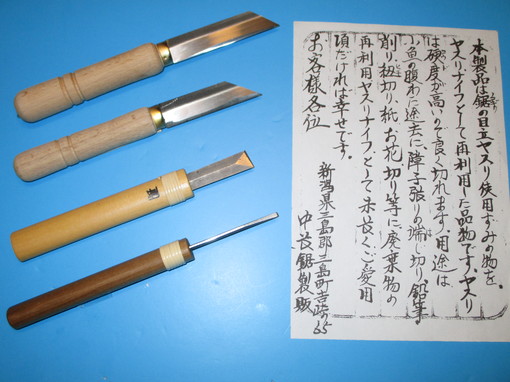 本製品は鋸の目立ヤスリ使用ずみの物を。
ヤスリナイフとして再利用した品物です。ヤスリ
は硬度が高いので良く切れます。用途は
小魚の腹わた途去に、障子張りの端し切り、鉛筆
削り、紐切り、紙、お花、切り等に、廃棄物の
再利用ヤスリナイフとして末長くご愛用
頂だければ幸せです。
お客様各位
新潟県三島郡三島町吉崎65
中長鋸製販